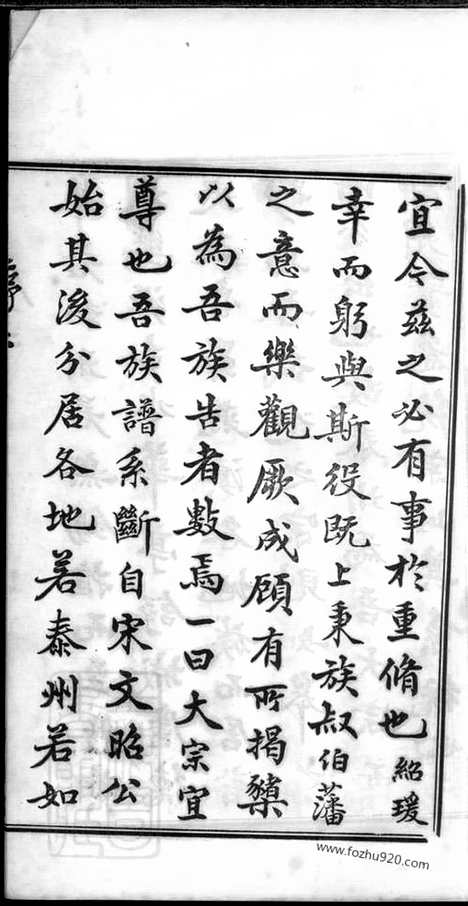 宜今茲之必有事於重脩也紹瑗
幸而躬與斯役既上秉族叔伯藩
之意而樂觀厥成顧有所揭櫫
以為吾族告者數焉一曰大宗宜
尊也吾族譜系斷自宋文昭公
始其後分居各地若泰州若如
www.fozhu920.com